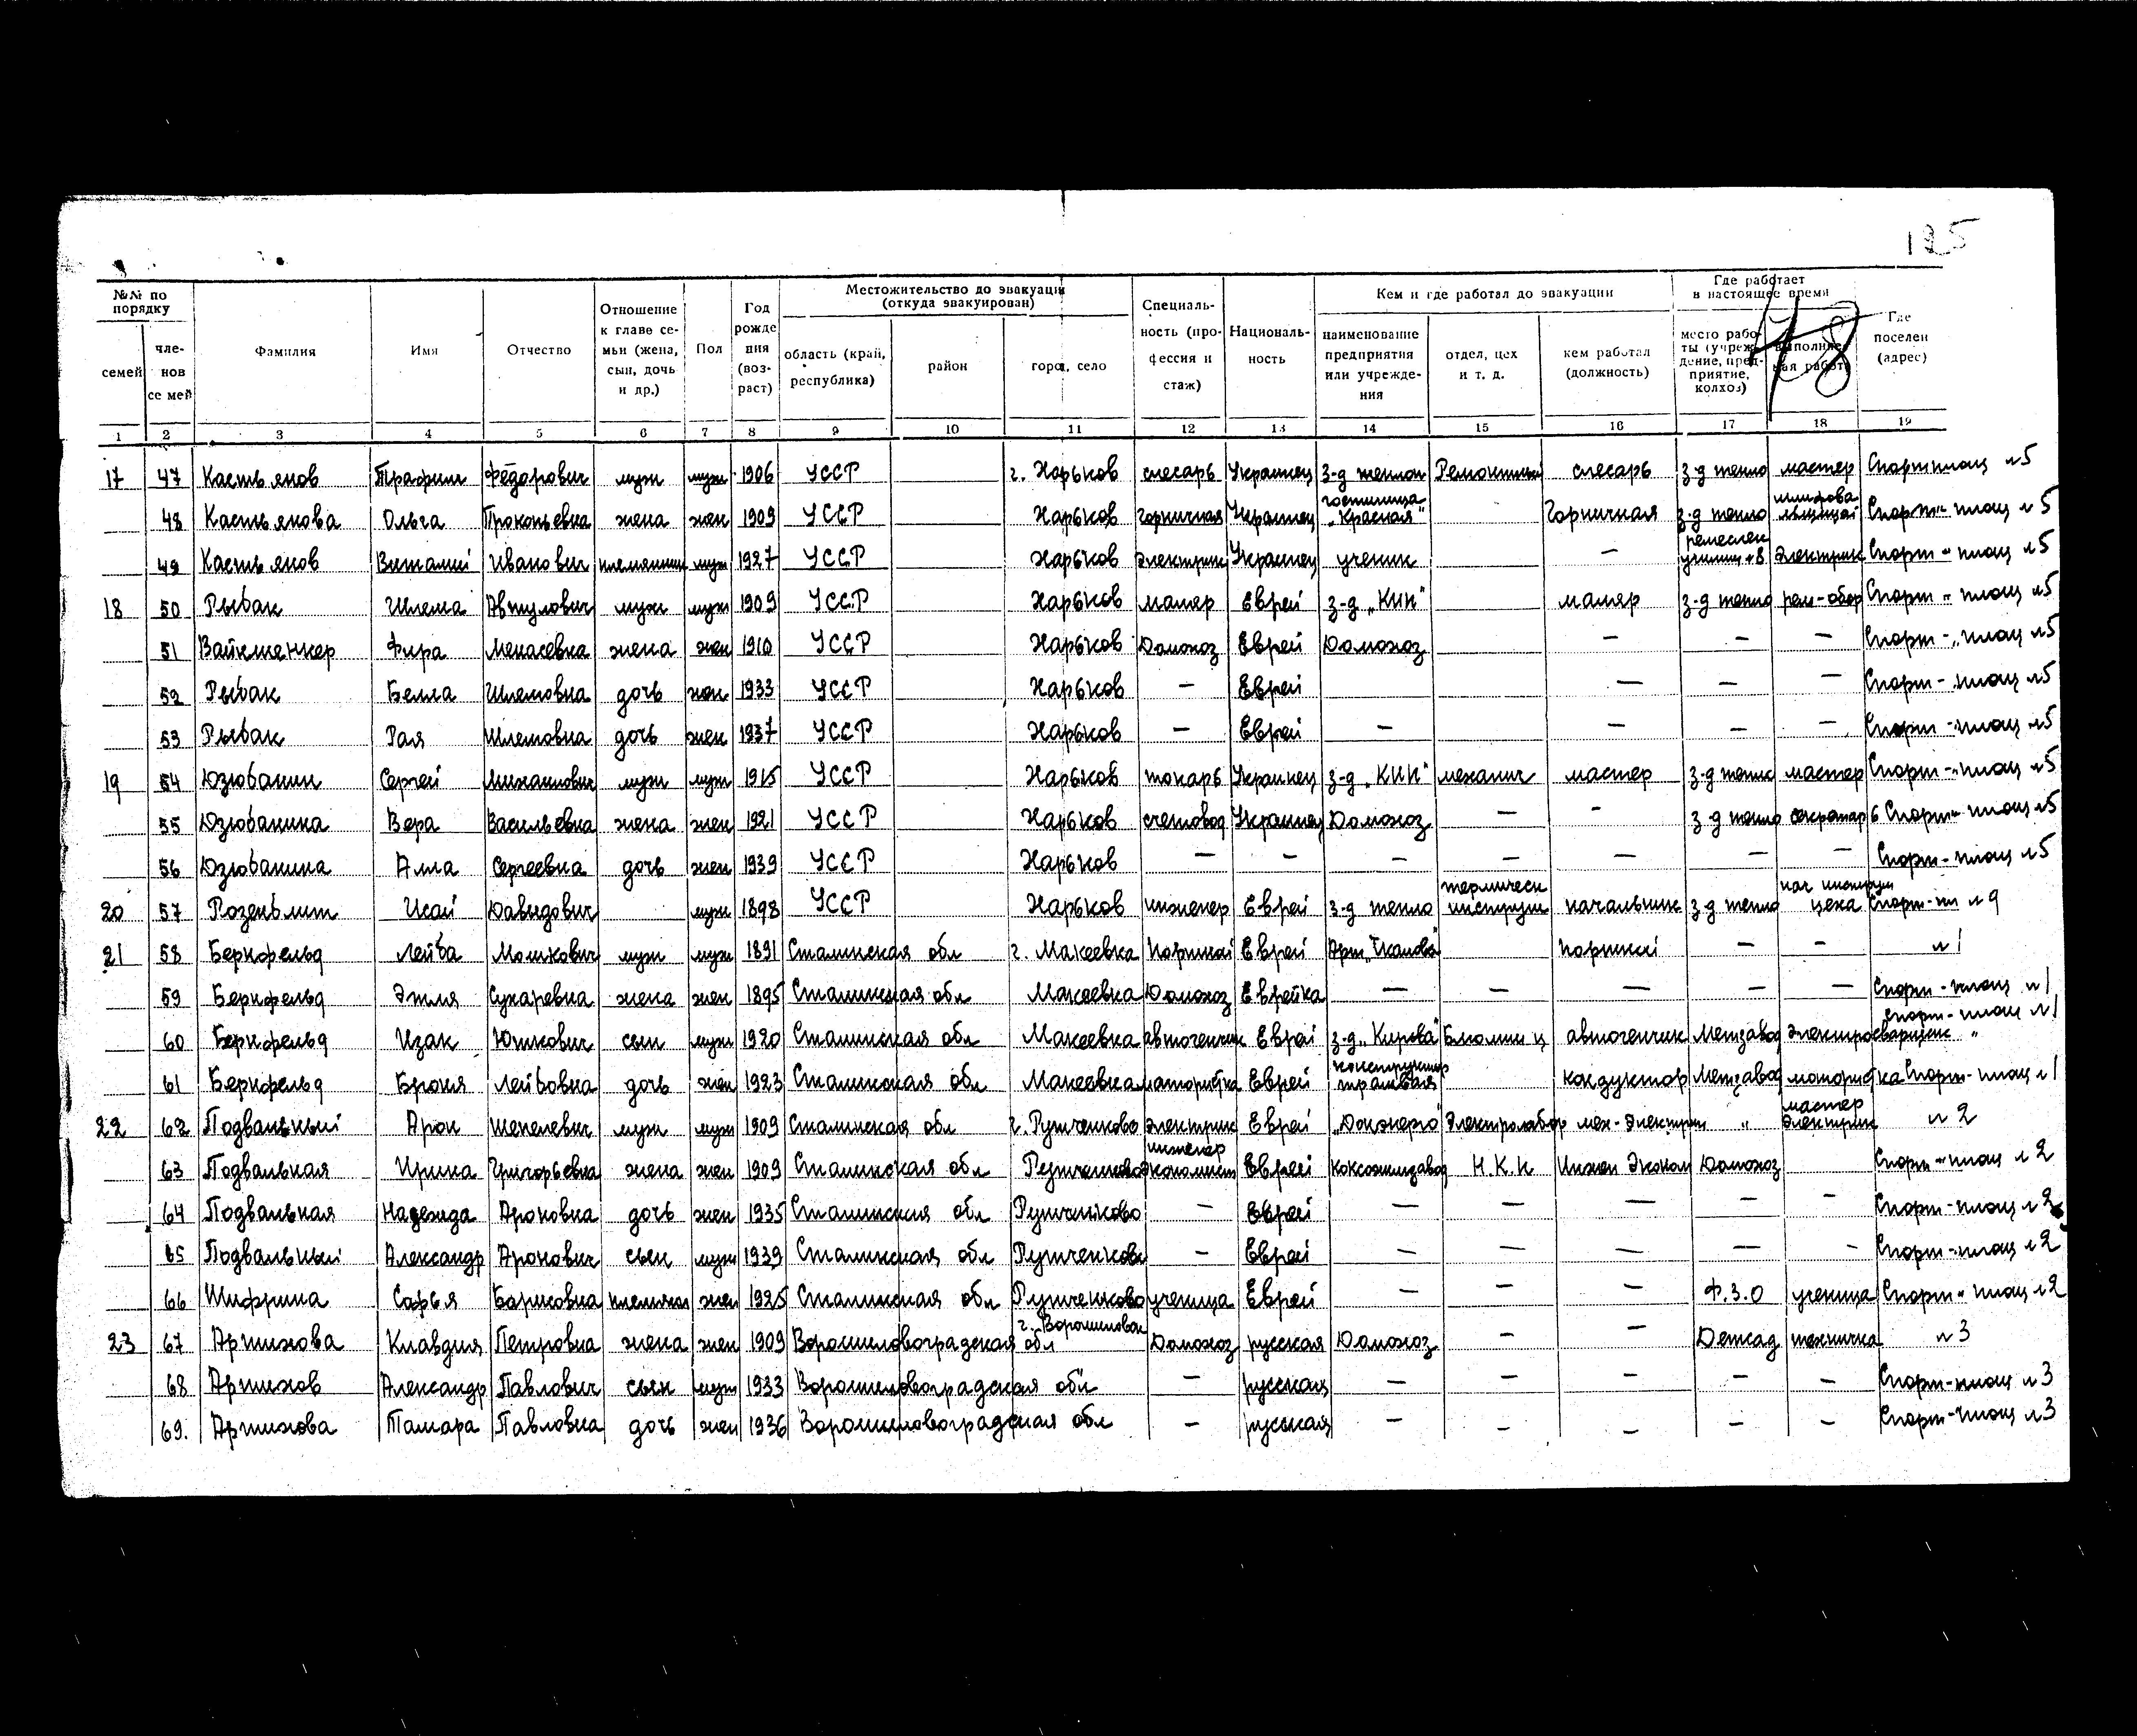 125
№№ по порядку
Фамилия
Имя
Отчество
Отношение к главе семьи (жена, сын, дочь и др.)
Пол
Год рождения (возраст)
Местожительство до эвакуации (откуда эвакуирован)
Специальность (профессия и стаж)
Национальность
Кем и где работал до эвакуации
Где работает в настоящее время
Где поселен (адрес)
семей
членов се мей
область (край, республика)
район
город, село
наименование предприятия или учреждения
отдел, цех и т. д.
кем работал (должность)
место работы (учреждение, предприятие, колхоз)
78
1 2 3 4 5 6 7 8 9 10 11 12 13 14 15 16 17 18 19
17 47 Кастьянов Трафим Фёдорович муж муж 1906 УССР г. Харьков слесарь Украинец з-д теплон Ремонтный слесарь з-д тепло мастер Спортплощ №5
48 Кастьянова Ольга Прокопьевна жена жен 1909 УССР Харьков горничная Украинец гостиница „Красная" Горничная з-д тепло Спорт-площ №5
49 Кастьянов Виталий Иванович племянник муж 1927 УССР Харьков электрик Украинец ученик — ремеслен училищ №8 электрик Спорт-площ №5
18 50 Рыбак Шлема Автулович муж муж 1909 УССР Харьков маляр Еврей з-д „КИН" маляр з-д тепло рем-обор Спорт-площ №5
51 Вайншенкер Фира Менасевна жена жен 1910 УССР Харьков Домохоз Еврей Домохоз — — — Спорт-площ №5
52 Рыбак Белла Шлемовна дочь жен 1933 УССР Харьков — Еврей — — — Спорт-площ №5
53 Рыбак Рая Шлемовна дочь жен 1937 УССР Харьков — Еврей — — — — Спорт-площ №5
19 54 Дзюбанин Сергей Михайлович муж муж 1915 УССР Харьков токарь Украинец з-д „КИН" механич мастер з-д тепло мастер Спорт-площ №5
55 Дзюбанина Вера Васильевна жена жен 1921 УССР Харьков счетовод Украинец Домохоз — — з-д тепло секретарь Спорт-площ №5
56 Дзюбанина Алла Сергеевна дочь жен 1939 УССР Харьков — — — — — — — Спорт-площ №5
20 57 Розенблит Исай Давидович муж 1898 УССР Харьков инженер Еврей з-д тепло термическ инструм начальник з-д тепло нач инструм цеха Спорт-пл №9
21 58 Беркфельд Лейба Мошкович муж муж 1891 Сталинская обл г. Макеевка Портной Еврей портной — — №1
59 Беркфельд Этля Сухаревна жена жен 1895 Сталинская обл Макеевка Домохоз Еврейка — — — — — Спорт-площ №1
60 Беркфельд Изак сын муж 1920 Сталинская обл Макеевка автогенчик Еврей з-д „Кирова" Блюминг ц автогенчик Метзавод электросварщик Спорт-площ №1 "
61 Беркфельд Броня Лейбовна дочь жен 1923 Сталинская обл Макеевка Еврей трамвая кондуктор Метзавод Спорт-площ №1
22 62 Подвальный Арон Шепелевич муж муж 1909 Сталинская обл г. Рутченково электрик Еврей „Донэнерго" Электролабор мех-электрик " мастер электрик №2
63 Подвальная Ирина Григорьевна жена жен 1909 Сталинская обл Рутченково инженер экономист Еврей коксохимзавод Н.К.К Инжен Эконом Домохоз Спорт-площ №2
64 Подвальная Надежда Ароновна дочь жен 1935 Сталинская обл Рутченково — Еврей — — — — — Спорт-площ №2
65 Подвальный Александр Аронович сын муж 1939 Сталинская обл Рутченково — Еврей — — — — — Спорт-площ №2
66 Шифрина Софья Борисовна племянни жен 1925 Сталинская обл Рутченково ученица Еврей — — — Ф.З.О ученица Спорт-площ №2
23 67 Артюхова Клавдия Петровна жена жен 1909 Ворошиловоградская обл г. Ворошиловог Домохоз русская Домохоз — — Детсад техничка №3
68 Артюхов Александр Павлович сын муж 1933 Ворошиловоградская обл — русская — — — — — Спорт-площ №3
69. Артюхова Тамара Павловна дочь жен 1936 Ворошиловоградская обл — русская — — — — — Спорт-площ №3